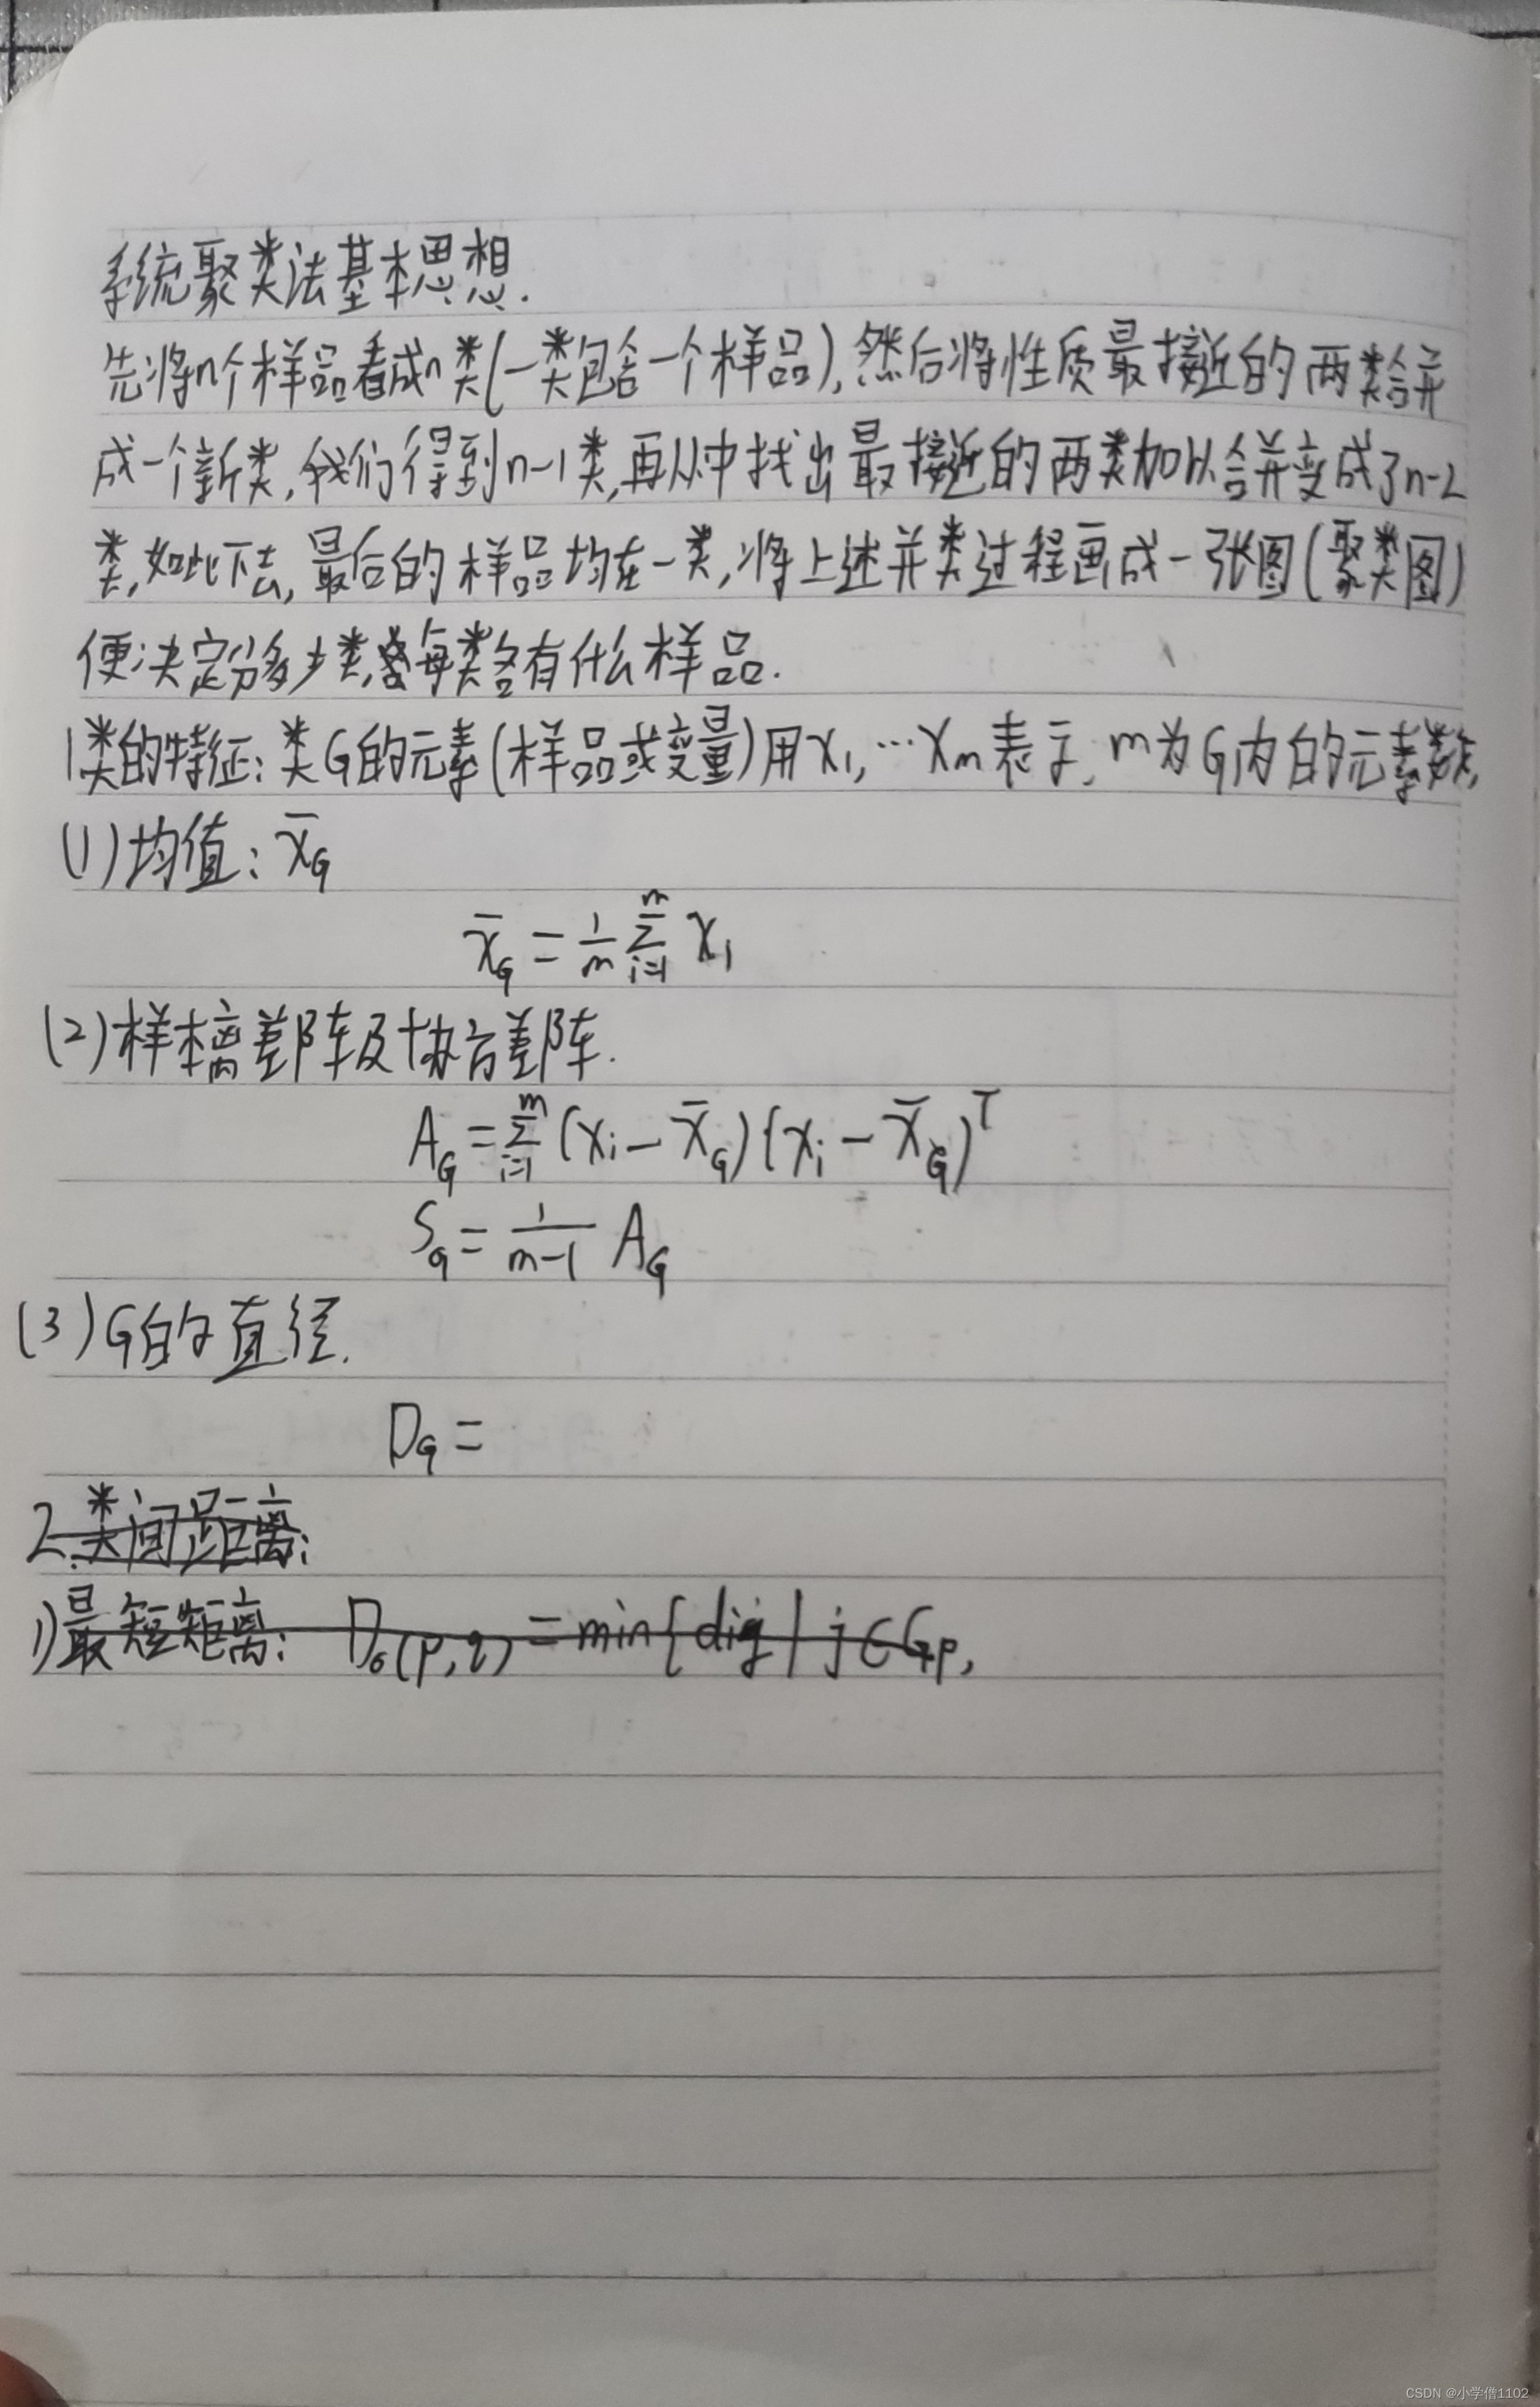 系统聚类法基本思想.
先将n个样品看成n类(一类包含一个样品),然后将性质最接近的两类合并
成一个新类,我们得到n-1类,再从中找出最接近的两类加以合并变成了n-2
类,如此下去,最后的样品均在一类,将上述并类过程画成一张图(聚类图)
便决定分多少类,每类各有什么样品.
1类的特征:类G的元素(样品或变量)用x₁,…xₘ表示,m为G内的元素数,
(1)均值:x̄_G
x̄_G = 1/m Σ_{i=1}^{m} x₁
(2)样本离差阵及协方差阵.
A_G = Σ_{i=1}^{m} (x_i - x̄_G)(x_i - x̄_G)^T
S_G = 1/(m-1) A_G
(3)G的直径.
D_G =
2.类间距离:
1)最短距离: D_s(p,q) = min{d_{ig} | j∈G_p,
CSDN @小学僧1102